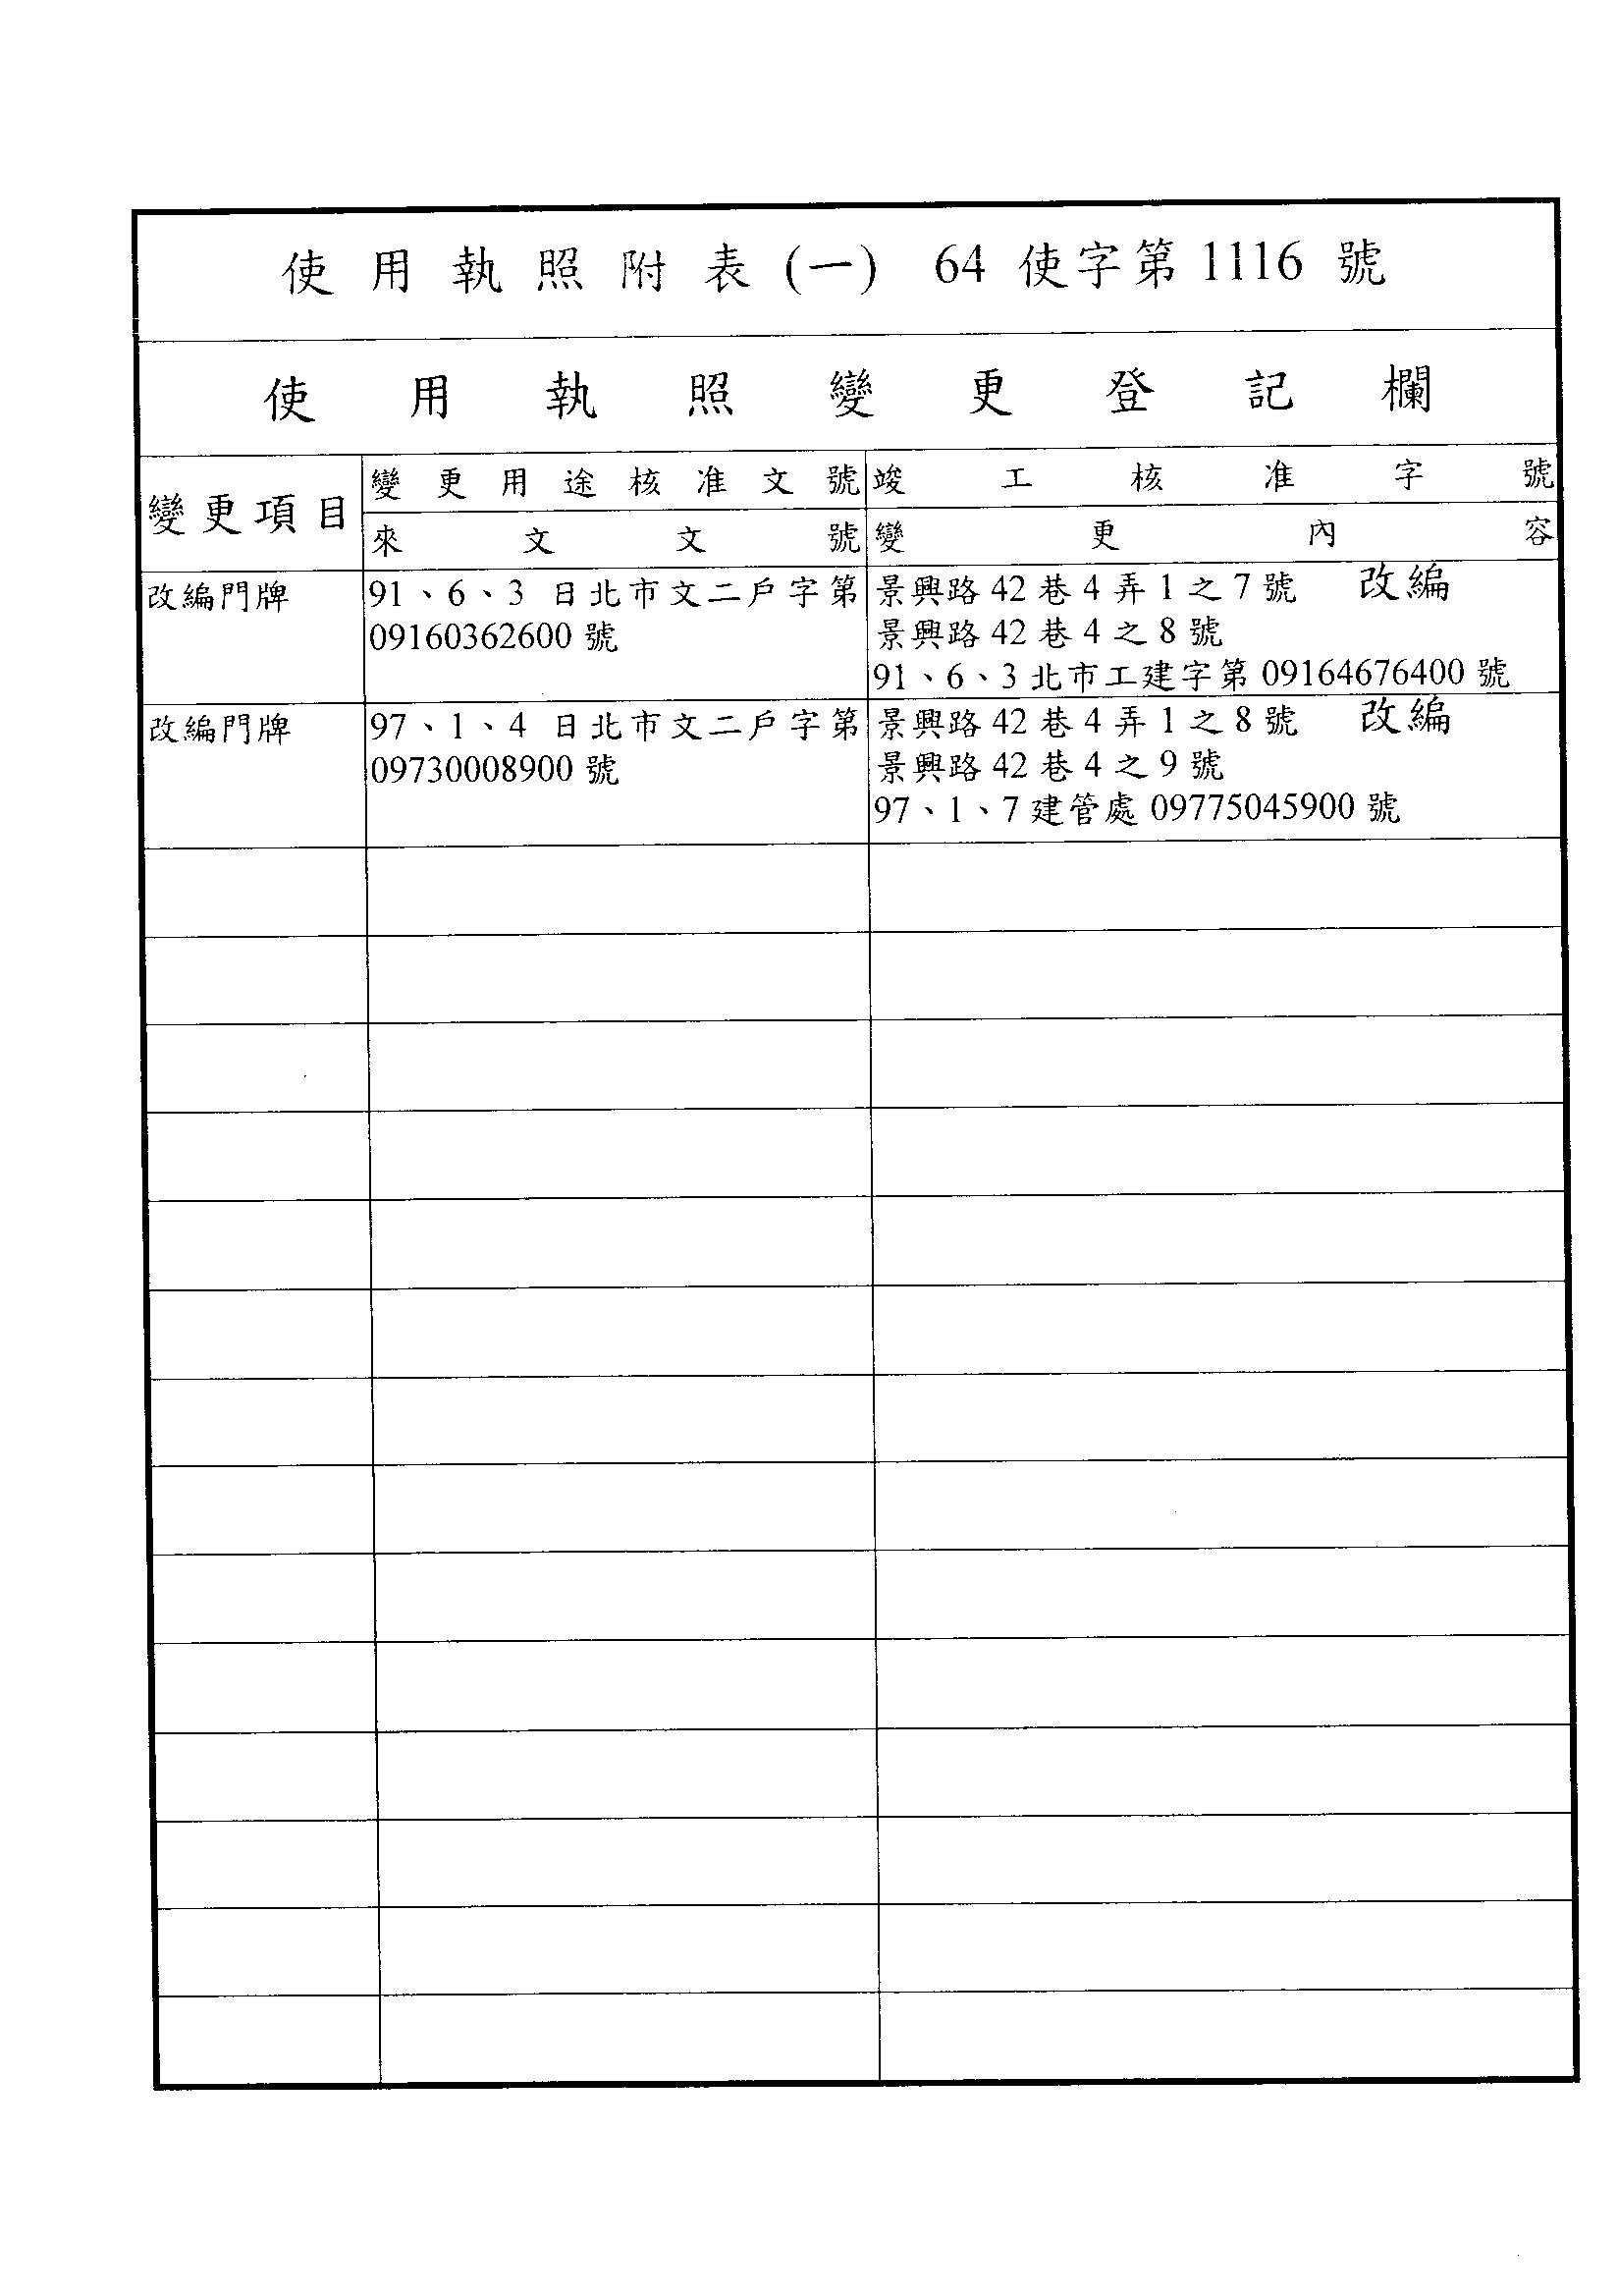 使用執照附表(一) 64 使字第 1116 號
使用執照變更登記欄
變更項目
變更用途核准文號 竣工核准字號
來文文號 變更內容
改編門牌 91、6、3 日北市文二戶字第 景興路 42 巷 4 弄 1 之 7 號 改編
09160362600 號 景興路 42 巷 4 之 8 號
91、6、3 北市工建字第 09164676400 號
改編門牌 97、1、4 日北市文二戶字第 景興路 42 巷 4 弄 1 之 8 號 改編
09730008900 號 景興路 42 巷 4 之 9 號
97、1、7 建管處 09775045900 號